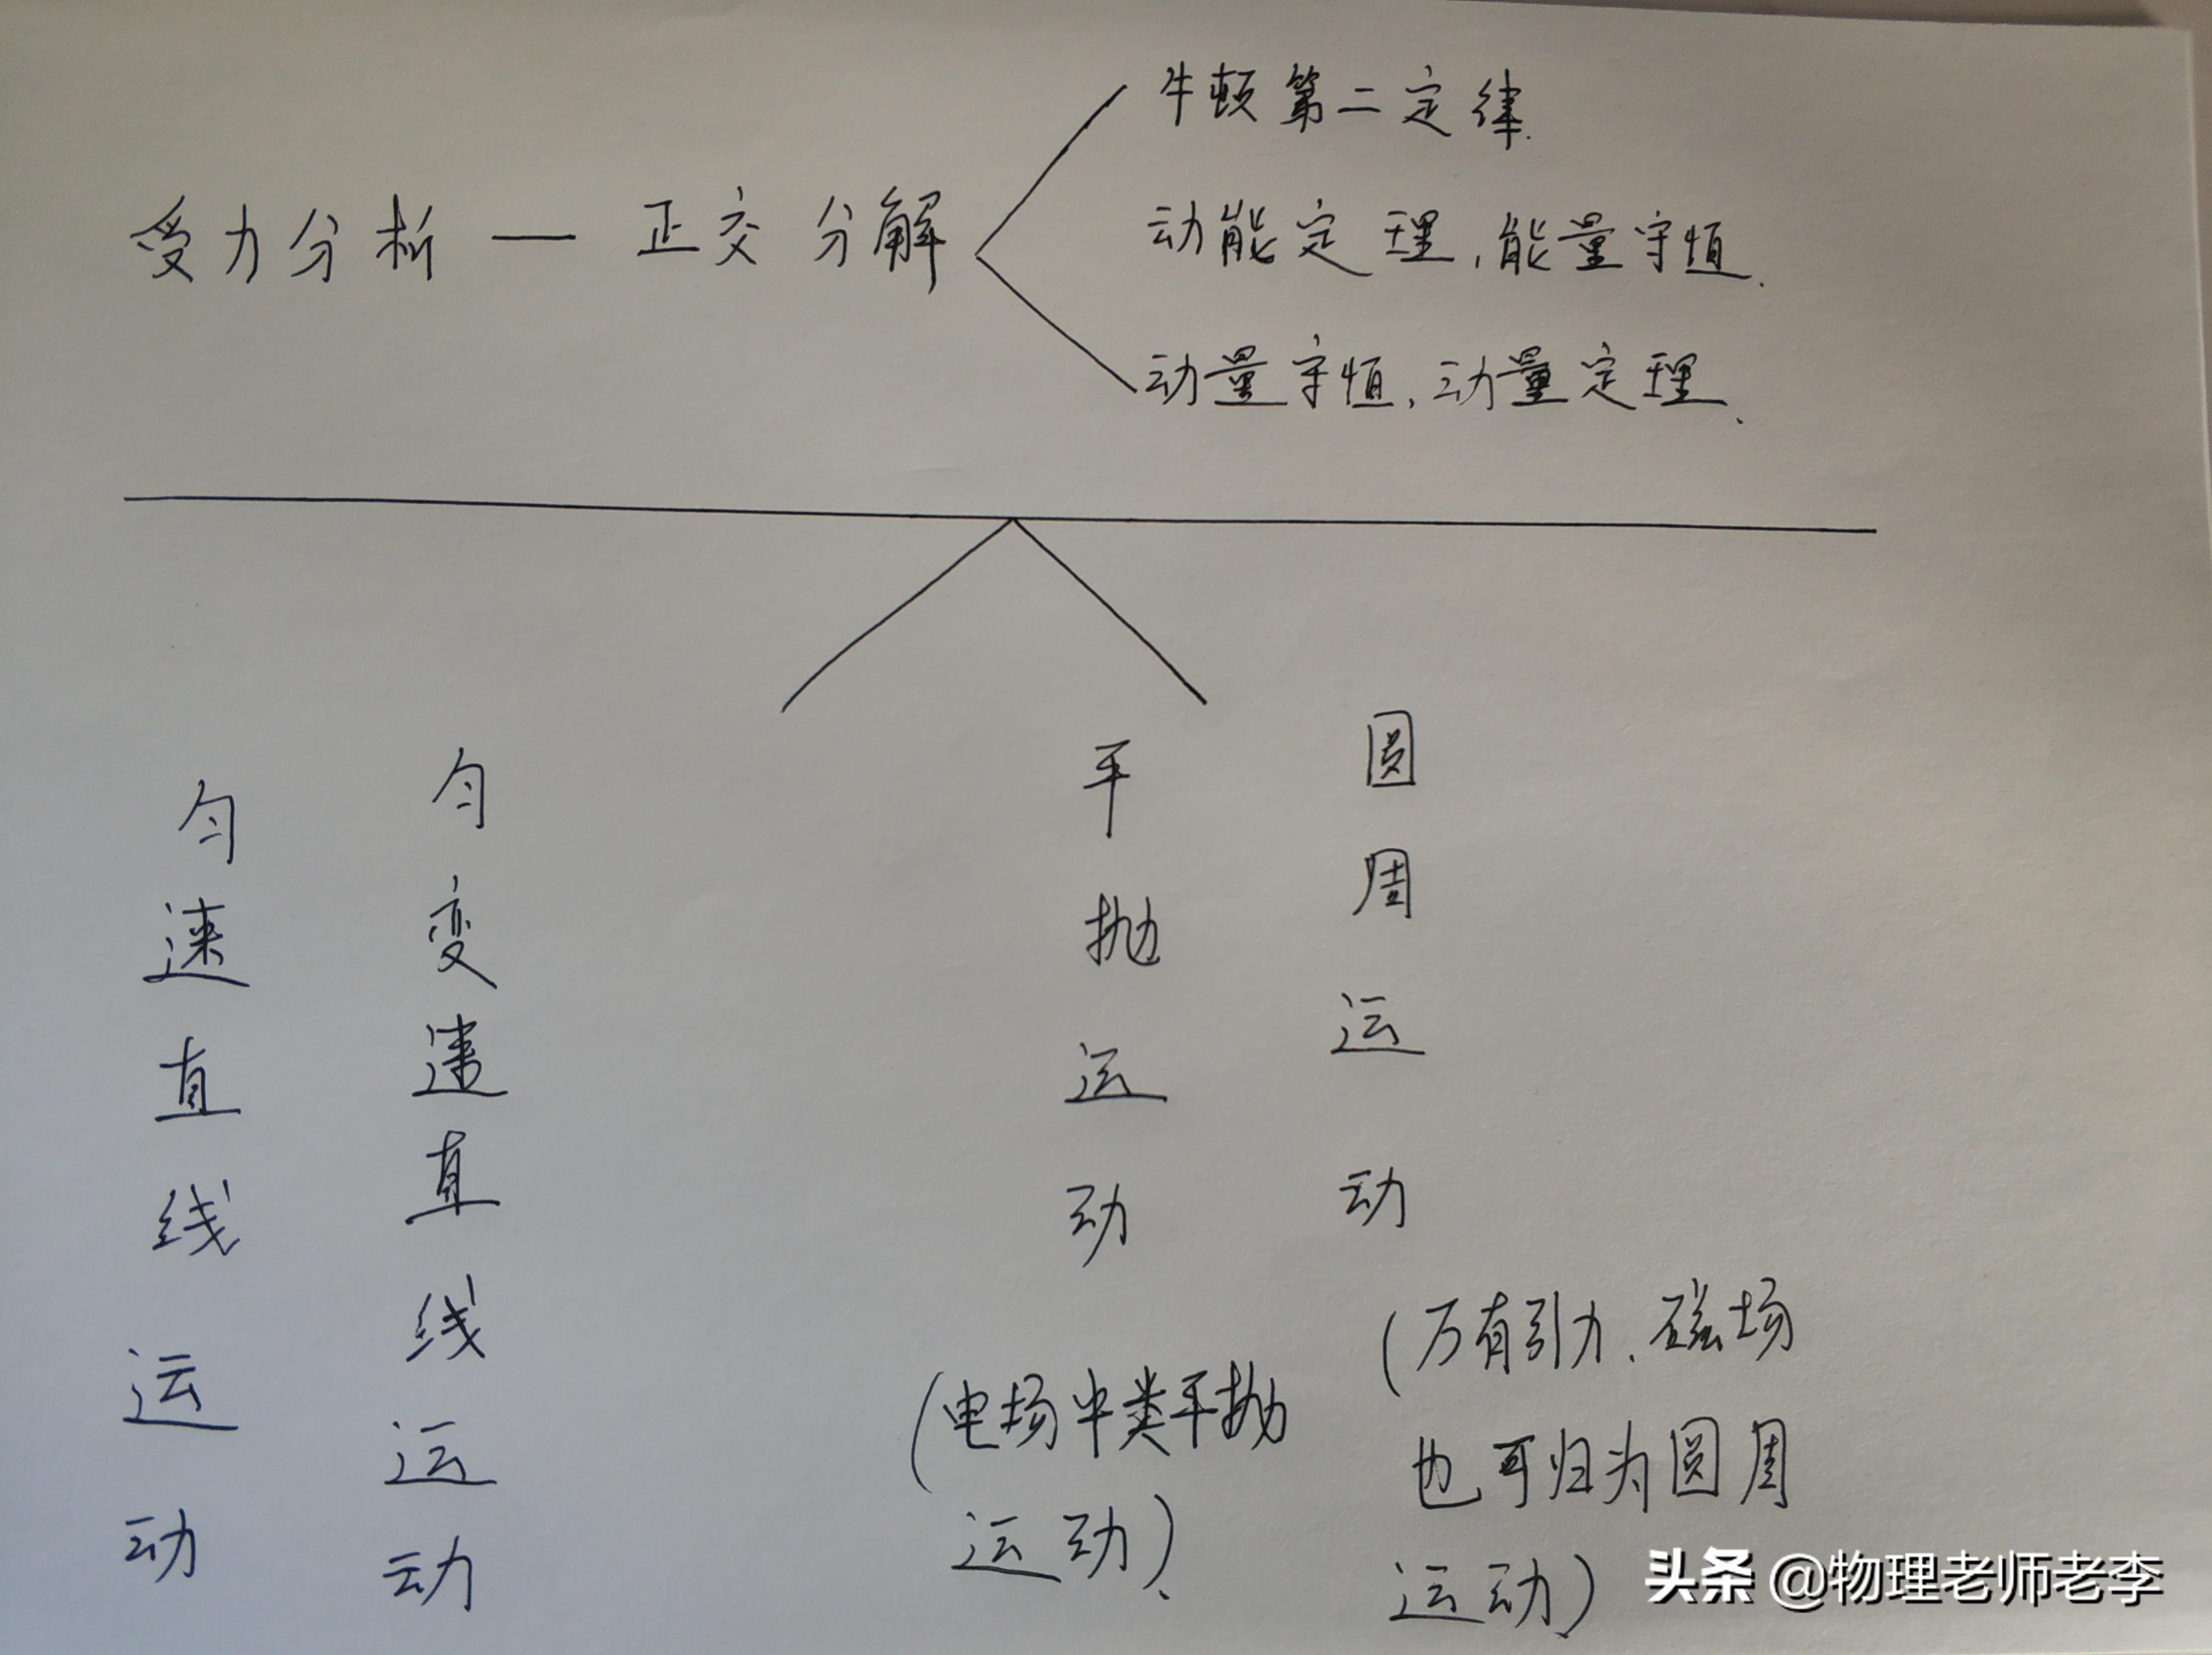 受力分析 — 正交分解
牛顿第二定律.
动能定理,能量守恒.
动量守恒,动量定理.
匀速直线运动
匀变速直线运动
平抛运动
(电场中类平抛
运动).
圆周运动
(万有引力、磁场
也可归为圆周
运动)
头条 @物理老师老李